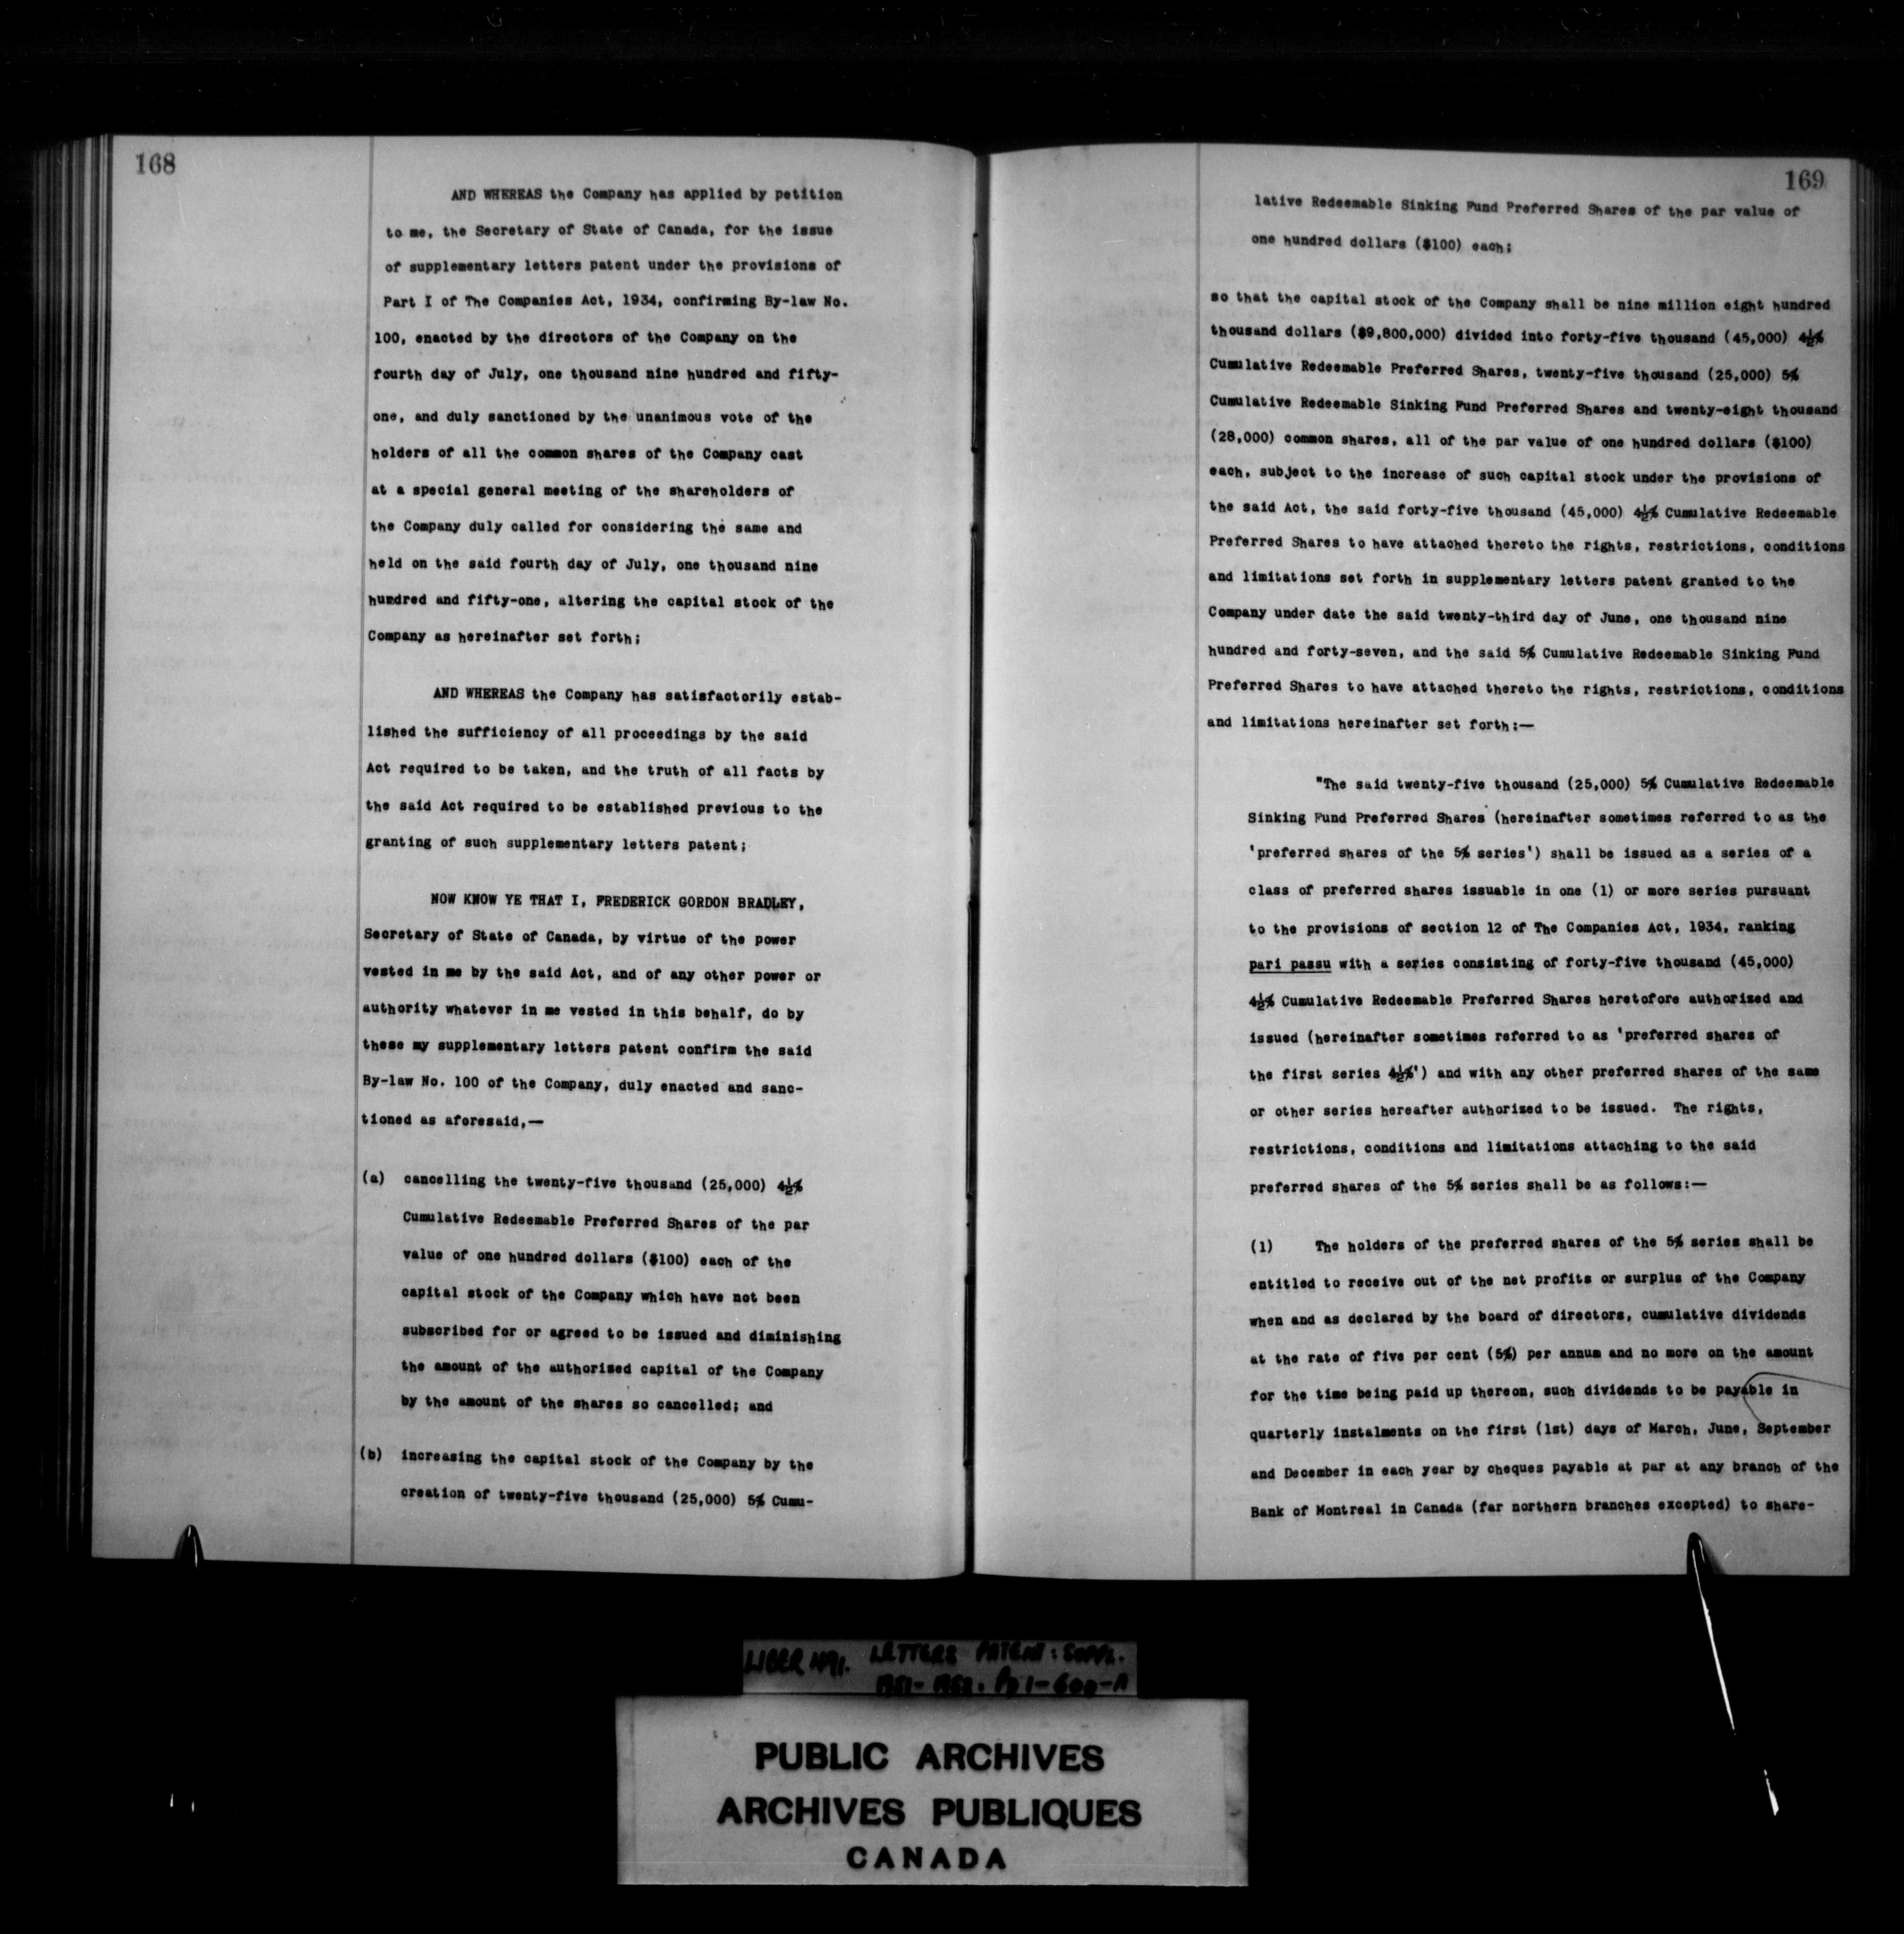 168
AND WHEREAS the Company has applied by petition
to me, the Secretary of State of Canada, for the issue
of supplementary letters patent under the provisions of
Part I of The Companies Act, 1934, confirming By-law No.
100, enacted by the directors of the Company on the
fourth day of July, one thousand nine hundred and fifty-
one, and duly sanctioned by the unanimous vote of the
holders of all the common shares of the Company cast
at a special general meeting of the shareholders of
the Company duly called for considering the same and
held on the said fourth day of July, one thousand nine
hundred and fifty-one, altering the capital stock of the
Company as hereinafter set forth;
AND WHEREAS the Company has satisfactorily estab-
lished the sufficiency of all proceedings by the said
Act required to be taken, and the truth of all facts by
the said Act required to be established previous to the
granting of such supplementary letters patent;
NOW KNOW YE THAT I, FREDERICK GORDON BRADLEY,
Secretary of State of Canada, by virtue of the power
vested in me by the said Act, and of any other power or
authority whatever in me vested in this behalf, do by
these my supplementary letters patent confirm the said
By-law No. 100 of the Company, duly enacted and sanc-
tioned as aforesaid,—
(a) cancelling the twenty-five thousand (25,000) 4½%
Cumulative Redeemable Preferred Shares of the par
value of one hundred dollars ($100) each of the
capital stock of the Company which have not been
subscribed for or agreed to be issued and diminishing
the amount of the authorized capital of the Company
by the amount of the shares so cancelled; and
(b) increasing the capital stock of the Company by the
creation of twenty-five thousand (25,000) 5% Cumu-
169
lative Redeemable Sinking Fund Preferred Shares of the par value of
one hundred dollars ($100) each;
so that the capital stock of the Company shall be nine million eight hundred
thousand dollars ($9,800,000) divided into forty-five thousand (45,000) 4½%
Cumulative Redeemable Preferred Shares, twenty-five thousand (25,000) 5%
Cumulative Redeemable Sinking Fund Preferred Shares and twenty-eight thousand
(28,000) common shares, all of the par value of one hundred dollars ($100)
each, subject to the increase of such capital stock under the provisions of
the said Act, the said forty-five thousand (45,000) 4½% Cumulative Redeemable
Preferred Shares to have attached thereto the rights, restrictions, conditions
and limitations set forth in supplementary letters patent granted to the
Company under date the said twenty-third day of June, one thousand nine
hundred and forty-seven, and the said 5% Cumulative Redeemable Sinking Fund
Preferred Shares to have attached thereto the rights, restrictions, conditions
and limitations hereinafter set forth:—
"The said twenty-five thousand (25,000) 5% Cumulative Redeemable
Sinking Fund Preferred Shares (hereinafter sometimes referred to as the
'preferred shares of the 5% series') shall be issued as a series of a
class of preferred shares issuable in one (1) or more series pursuant
to the provisions of section 12 of The Companies Act, 1934, ranking
pari passu with a series consisting of forty-five thousand (45,000)
4½% Cumulative Redeemable Preferred Shares heretofore authorized and
issued (hereinafter sometimes referred to as 'preferred shares of
the first series 4½%') and with any other preferred shares of the same
or other series hereafter authorized to be issued. The rights,
restrictions, conditions and limitations attaching to the said
preferred shares of the 5% series shall be as follows:—
(1) The holders of the preferred shares of the 5% series shall be
entitled to receive out of the net profits or surplus of the Company
when and as declared by the board of directors, cumulative dividends
at the rate of five per cent (5%) per annum and no more on the amount
for the time being paid up thereon, such dividends to be payable in
quarterly instalments on the first (1st) days of March, June, September
and December in each year by cheques payable at par at any branch of the
Bank of Montreal in Canada (far northern branches excepted) to share-
LIBER 491. LETTERS PATENT: SUPPL.
1951-1952. Pg 1-600-A
PUBLIC ARCHIVES
ARCHIVES PUBLIQUES
CANADA